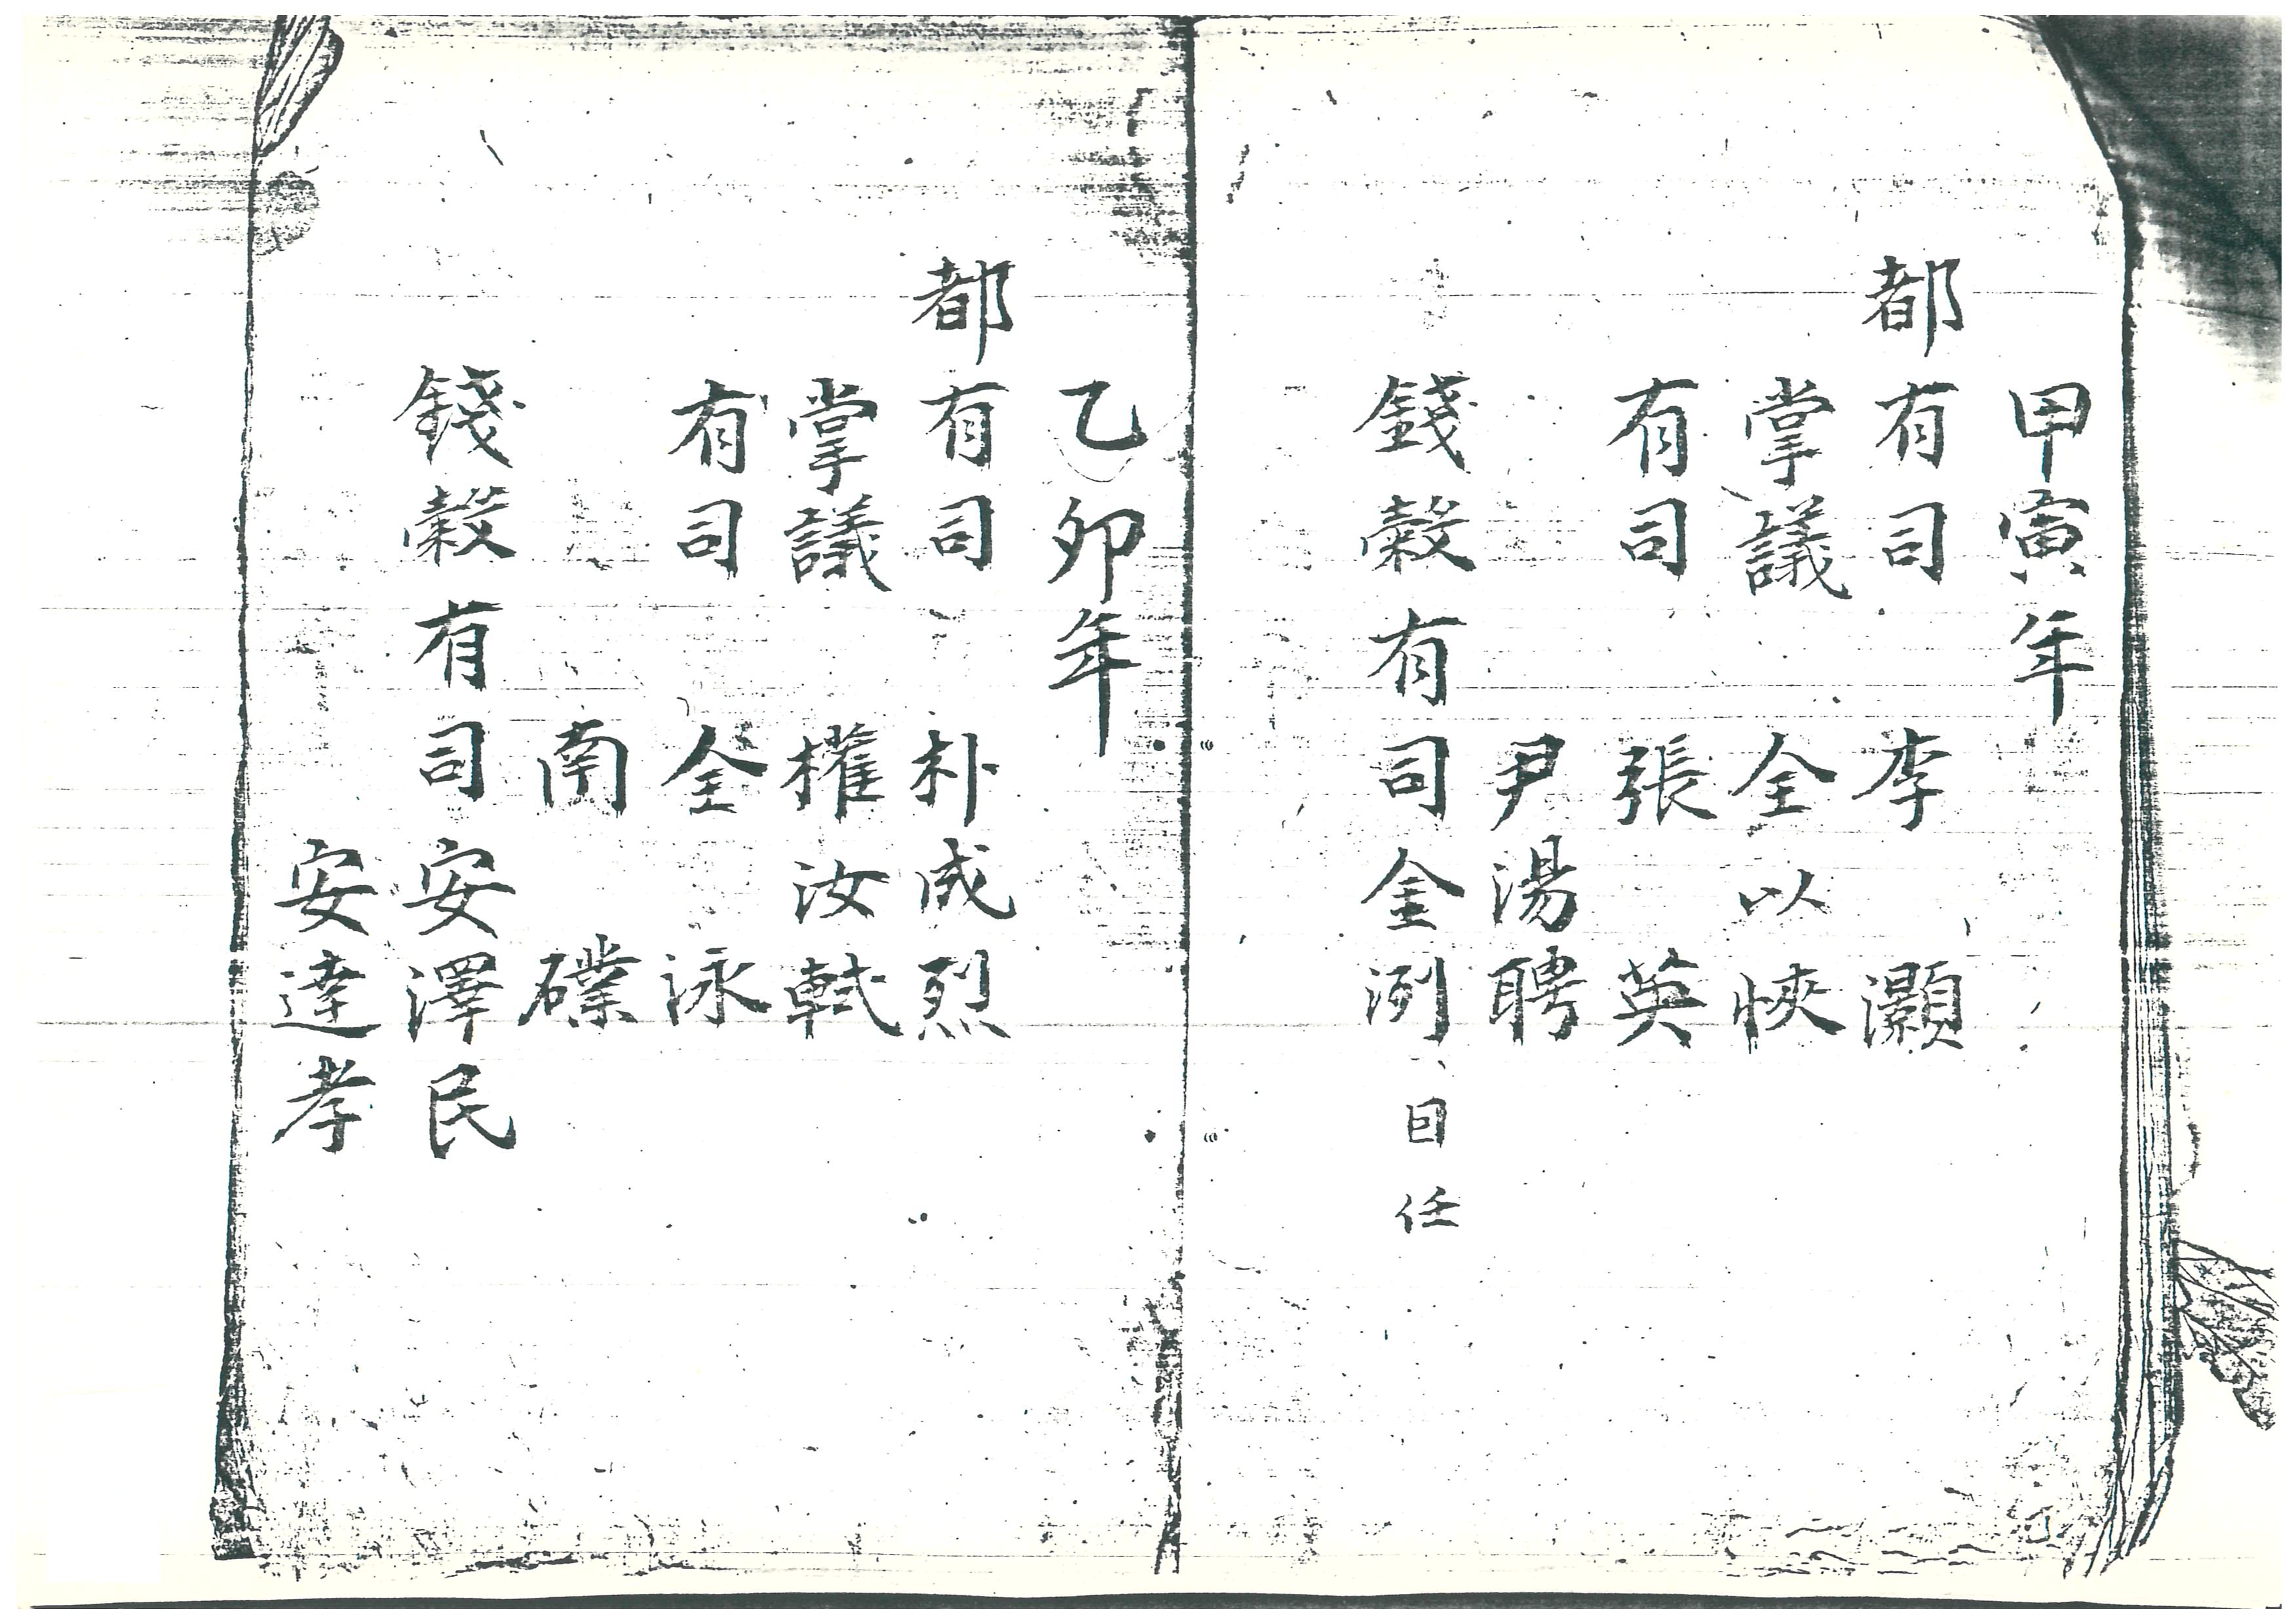 甲寅年
都有司 李灝
掌議 全以㤲
有司 張英
尹湯聘
錢穀有司金洌 因任
乙卯年
都有司 朴成烈
掌議 權汝軾
有司 全泳
南磼
錢穀有司 安澤民
安達孝